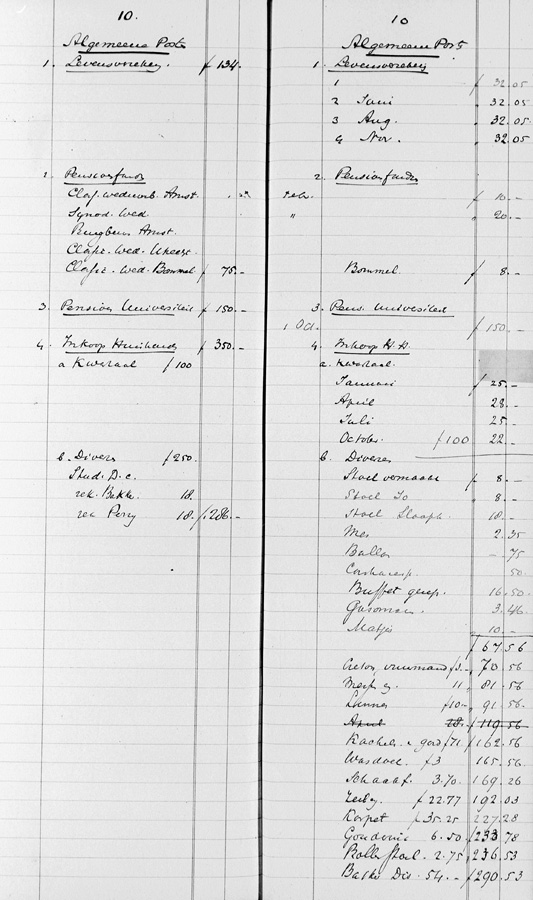 10.
Algemeene Posten
1. Levensverzeker. f 134.
2. Pensioenfonds
Class. weduwenb. Amst.
Synod. Wed.
Ringbeurs Amst.
Classic. Wed. Utrecht
Classic. Wed. Bommel f 75.-
3. Pension Universiteit f 150.-
4. Inkoop Huishoud f 350.-
a Kwartaal f 100
b. Divers f 250.
Stud. D.C.
rek. Bekk. 18.
rek Perry 18. f 286.-
10
Algemeen Post
1. Levensverzeker
1 f 32.05
2 Juni 32.05
3 Aug. 32.05
4 Nov. 32.05
2. Pensioenfonds
Febr. f 10.-
" 20.-
Bommel f 8.-
3. Pens. Universiteit
1 Oct. f 150.-
4. Inkoop H.H.
a. Kwartaal
Januari f 25.-
April 28.-
Juli 25.-
October f 100 22.-
b. Diverse
Stoel vermaakt f 8.-
Stoel Jo 8.-
Stoel Slaapk. 18.-
Mes 2.35
Ballen -.75
50.
Buffet gerep. 16.50
Gasornam. 3.46
Matjes 10.-
f 67.56
f 3.- 70.56
11 81.56
f 10.- 91.56
April 28.- f 119.56
Kachel f 71 f 162.56
Wasdoek f 3 165.56
Schaaf. 3.70. 169.26
f 22.77 192.03
Karpet f 35.25 227.28
6.50 f 233.78
Rolstoel. 2.75 f 236.53
54.- f 290.53